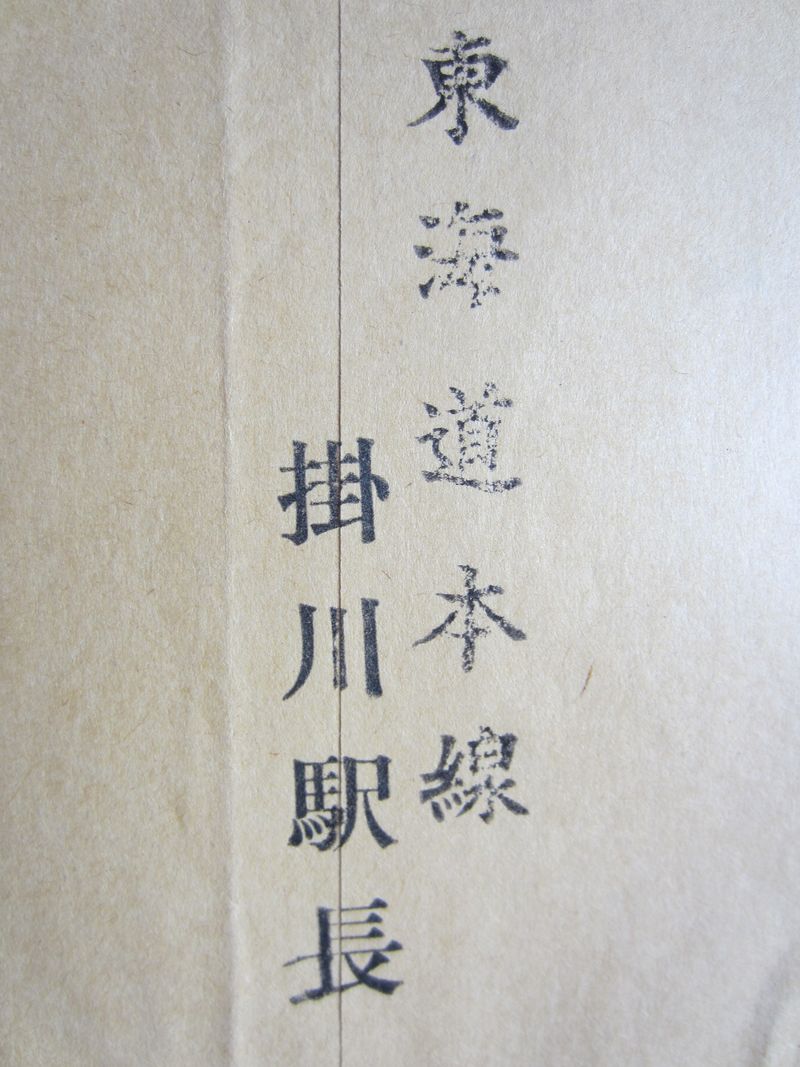 東海道本線
掛川駅長